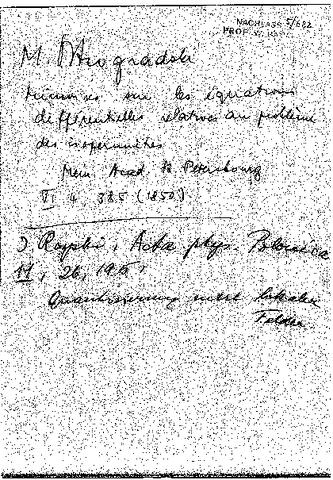 NACHLASS 5/682
PROF. W.
M. Ostrogradski
Mémoires sur les équations
différentielles relatives au problème
des isoperimètres
Mem Acad. St Petersbourg
VI 4 385 (1850)
J Rayski, Acta phys. Polonica
11, 26, 195
Quantisierung nicht lokaler
Felder